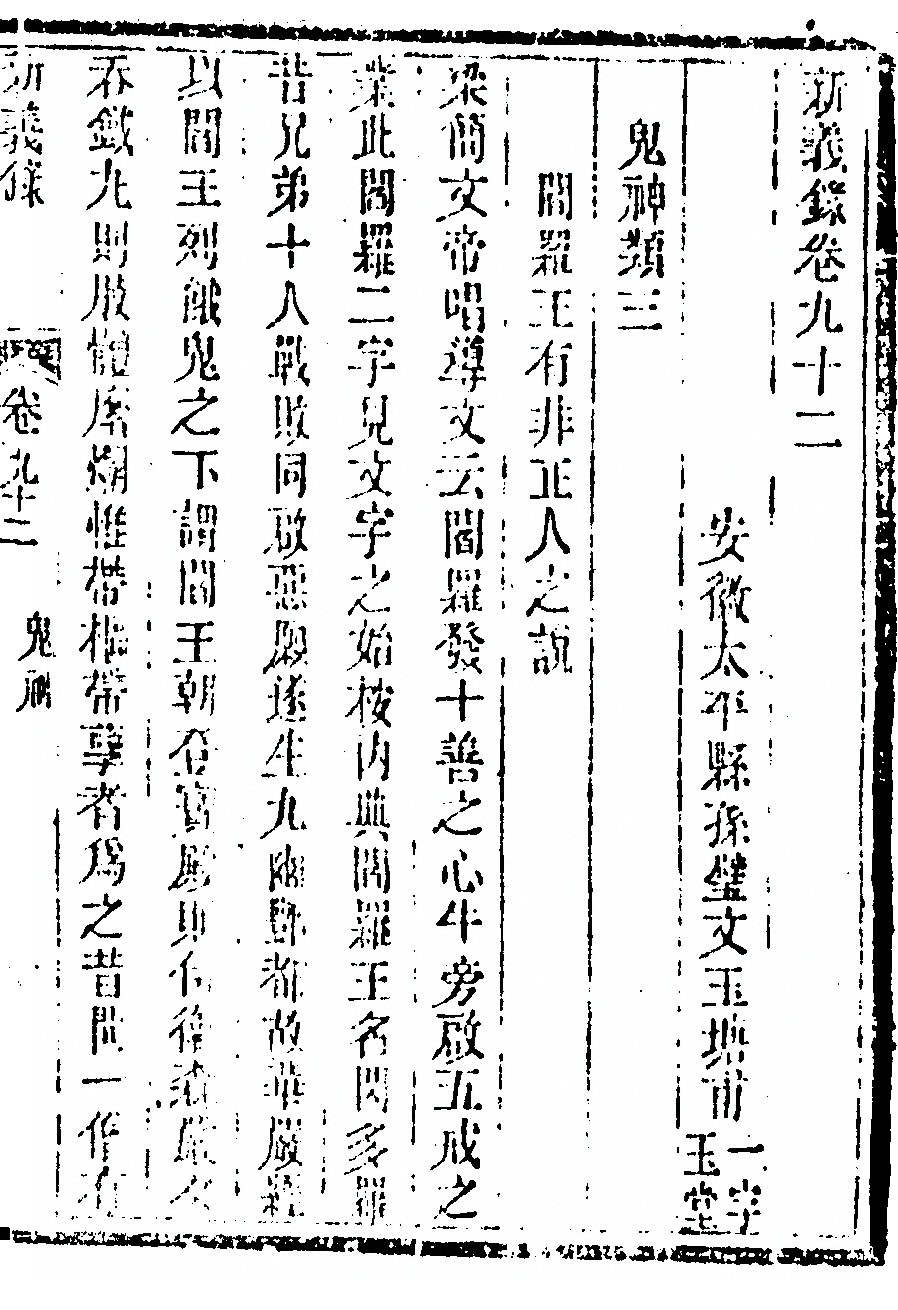 新義錄卷九十二
安徽太平縣孫璧文玉塘甫一字玉堂
鬼神類三
閻羅王有非正人之說
梁簡文帝唱導文云閻羅發十善之心牛旁啟五戒之
業此閻羅二字見文字之始按內典閻羅王名閃多羅
昔兄弟十八戰敗同啟惡願遂生九幽酆都故華嚴經
以閻王列餓鬼之下謂閻王朝登寶殿則侍衛森嚴
吞鐵丸則肢體糜爛惟帶權帶孽者為之昔聞一僧有
新義錄
卷九十二
鬼神